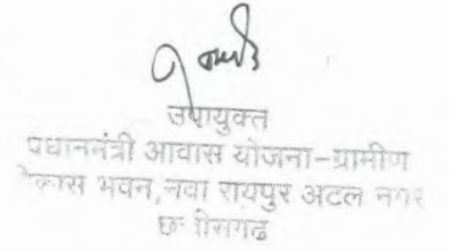 उपायुक्त
प्रधानमंत्री आवास योजना-ग्रामीण
विकास भवन, नवा रायपुर अटल नगर
छत्तीसगढ़